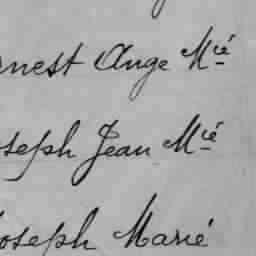 rnest Ange Mié
oseph Jean Mié
Joseph Marié